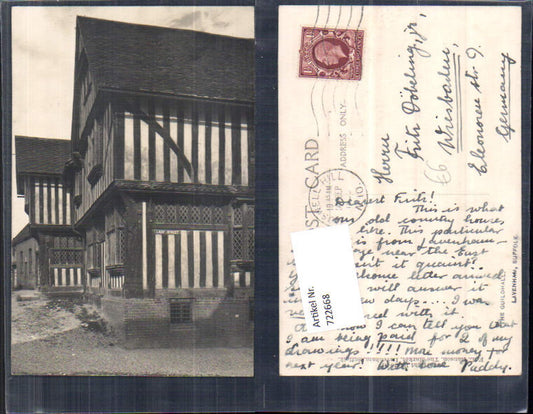 LADY STREET
POST CARD
ADDRESS ONLY
Herrn
Fritz Döbeling, jr,
E6 Wiesbaden,
Eleonoren str. 9.
Germany
Dearest Fritz!
This is what
our old country houses
like. This particular
is from Lavenham -
near the East
n't it quaint!
home letter arrived
will answer it
few days... I was
with it
now I can tell you that
I am being paid for 2 of my
drawings!!!! More money for
next year! With love Paddy.
THE GUILDHALL,
LAVENHAM, SUFFOLK
Artikel Nr.
722668